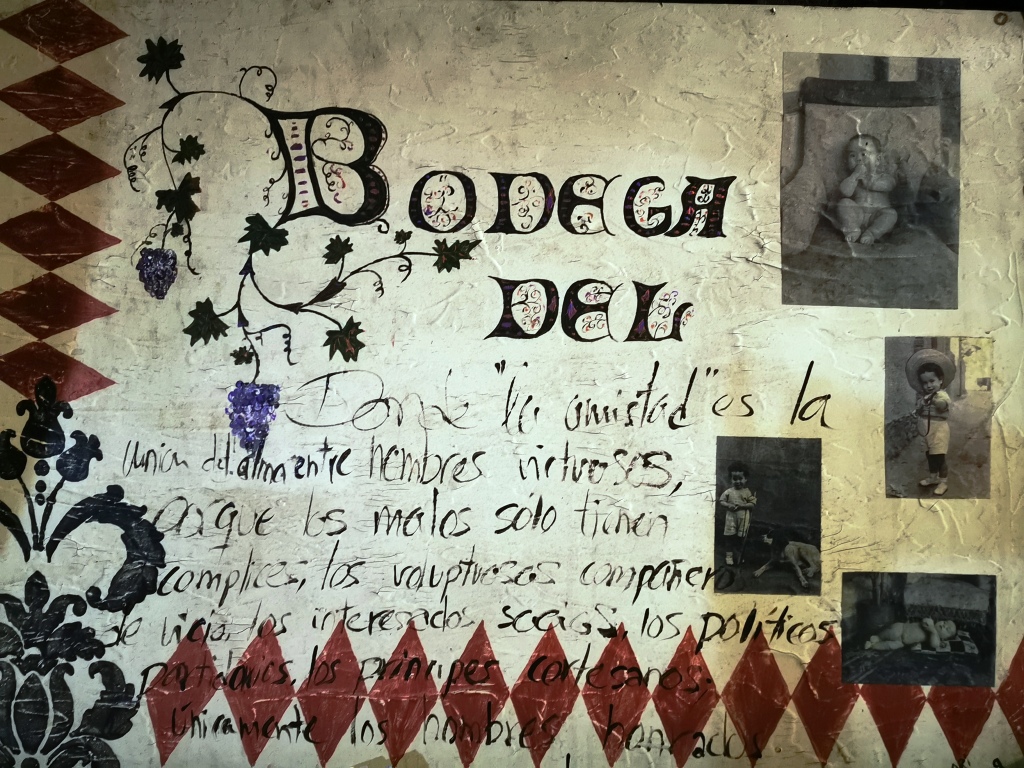 BODEGA
DEL
Donde "la amistad" es la
Union del alma entre hombres virtuosos,
porque los malos sólo tienen
complices, los voluptuosos compañero
de vicio, los interesados socios, los políticos
partidarios, los principes cortesanos;
Únicamente los hombres honrados.